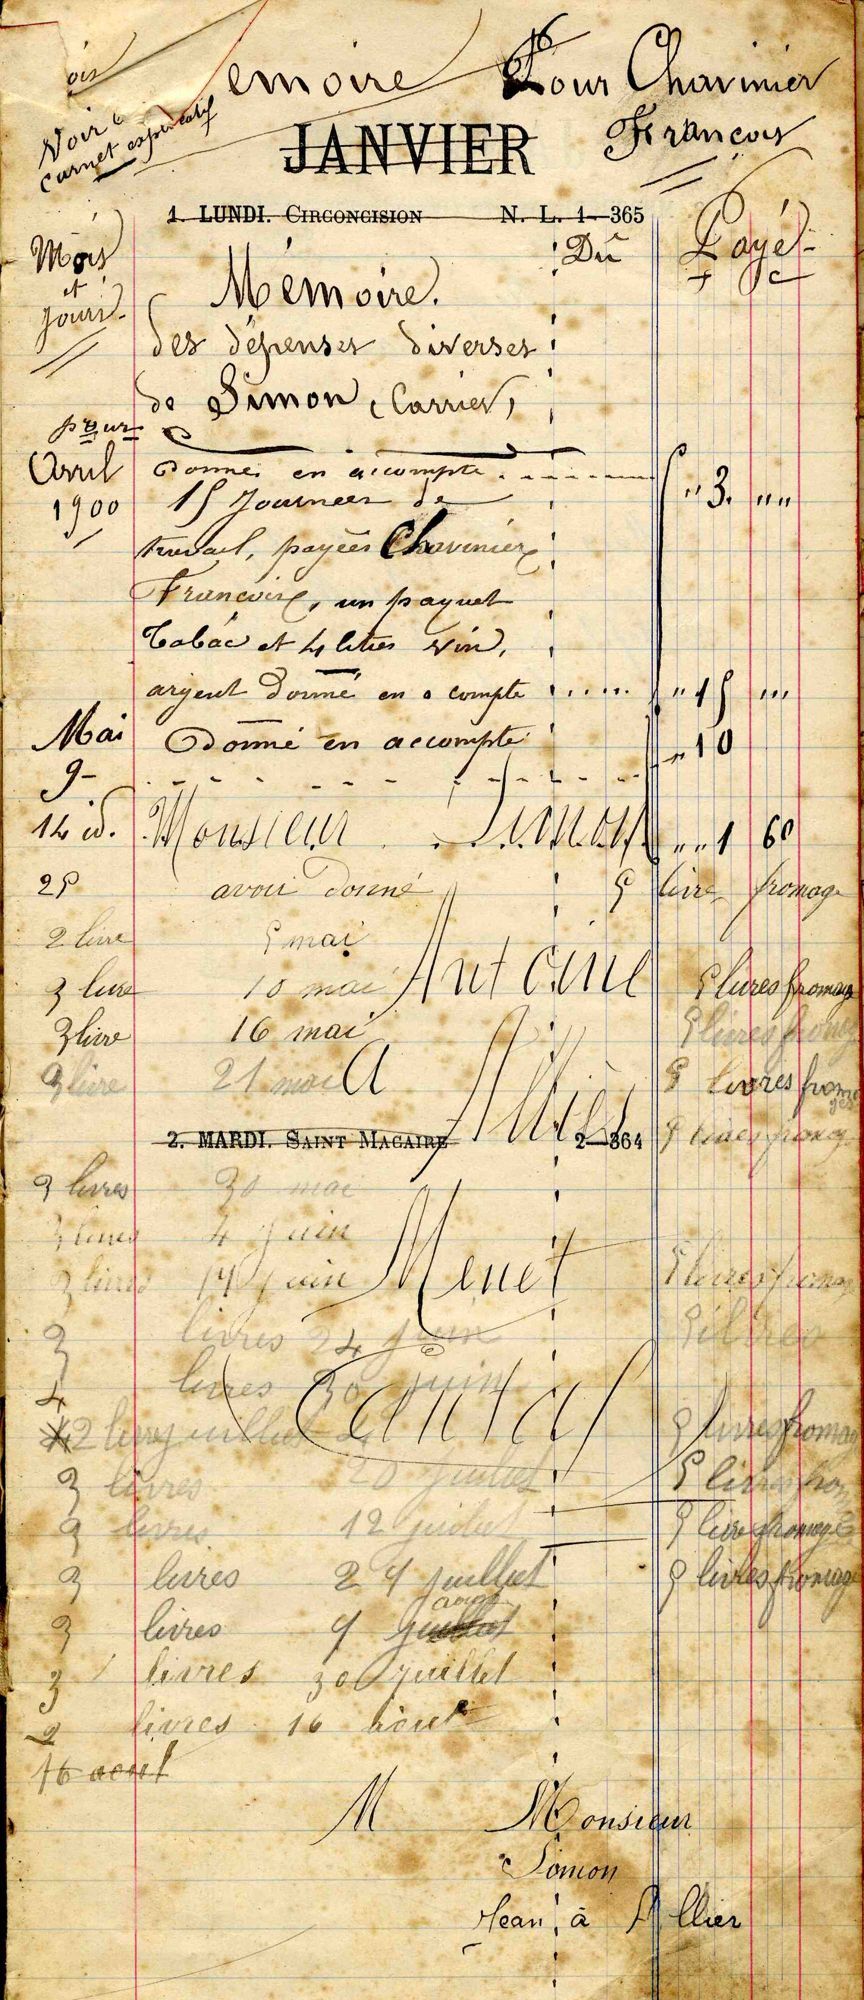 émoire Pour Chavinier
Voir
carnet espératif
JANVIER François
1. LUNDI. CIRCONCISION N. L. 1—365
Mois et jours. Dû Payé
f c
Mémoire.
des dépenses diverses
de Simon, Carrier,
pour
Avril Donné en accompte
1900 15 Journées de " 3. " "
travail, payées Chavinier
François, un paquet
Tabac et 4 litres vin,
argent donné en a compte " 15 " "
Mai Donné en accompte " 10
9
14 id. Monsieur Simon " " 1 60
25 avoir donné 5 livre fromage
2 livre 5 mai
3 livre 10 mai Antoine 5 livres fromage
3 livre 16 mai 5 livres fromage
3 livre 21 mai A 5 livres fromages
Alliès
2. MARDI. SAINT MACAIRE 2—364 5 livres fromage
3 livres 30 mai
3 livres 4 juin
3 livres 14 juin Menet 5 livres fromage
3 livres 24 juin
4 livres 30 juin Cantal
2 livres juillet 5 livres fromage
3 livres 20 juillet 5 livres
3 livres 12 juillet 5 livre fromage
3 livres 24 juillet 5 livres fromage
3 livres 4 juillet août
3 livres 30 juillet
2 livres 16 août
16 aout
M Monsieur
Simon
Jean à Allier